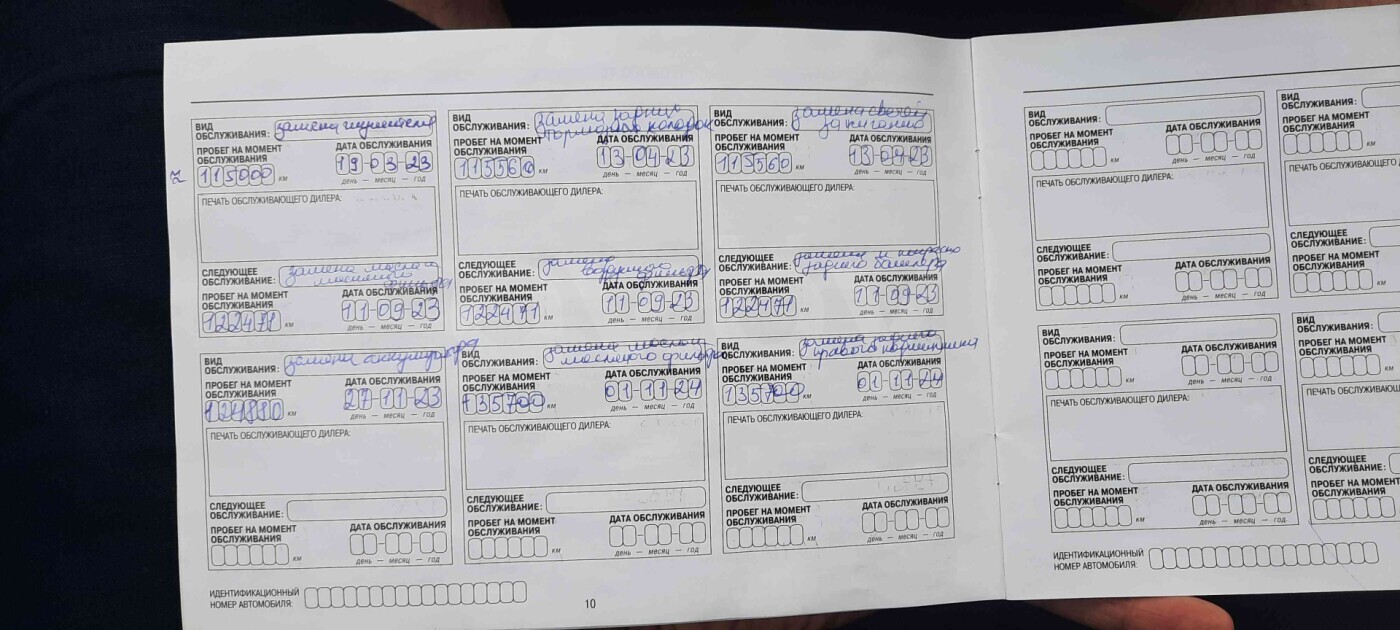 ВИД
ОБСЛУЖИВАНИЯ: замена глушителя
ПРОБЕГ НА МОМЕНТ
ОБСЛУЖИВАНИЯ
ДАТА ОБСЛУЖИВАНИЯ
115000 км
19-03-23
день — месяц — год
ПЕЧАТЬ ОБСЛУЖИВАЮЩЕГО ДИЛЕРА:
СЛЕДУЮЩЕЕ
ОБСЛУЖИВАНИЕ: замена масла и
масляного
фильтра
ПРОБЕГ НА МОМЕНТ
ОБСЛУЖИВАНИЯ
ДАТА ОБСЛУЖИВАНИЯ
122471 км
11-09-23
день — месяц — год
ВИД
ОБСЛУЖИВАНИЯ: замена задних
тормозных колодок
ПРОБЕГ НА МОМЕНТ
ОБСЛУЖИВАНИЯ
ДАТА ОБСЛУЖИВАНИЯ
115560 км
13-04-23
день — месяц — год
ПЕЧАТЬ ОБСЛУЖИВАЮЩЕГО ДИЛЕРА:
СЛЕДУЮЩЕЕ
ОБСЛУЖИВАНИЕ: замена
воздушного фильтра
ПРОБЕГ НА МОМЕНТ
ОБСЛУЖИВАНИЯ
ДАТА ОБСЛУЖИВАНИЯ
122471 км
11-09-23
день — месяц — год
ВИД
ОБСЛУЖИВАНИЯ: замена свечей
зажигания
ПРОБЕГ НА МОМЕНТ
ОБСЛУЖИВАНИЯ
ДАТА ОБСЛУЖИВАНИЯ
115560 км
13-04-23
день — месяц — год
ПЕЧАТЬ ОБСЛУЖИВАЮЩЕГО ДИЛЕРА:
СЛЕДУЮЩЕЕ
ОБСЛУЖИВАНИЕ: замена и покраска
заднего бампера
ПРОБЕГ НА МОМЕНТ
ОБСЛУЖИВАНИЯ
ДАТА ОБСЛУЖИВАНИЯ
122471 км
11-09-23
день — месяц — год
ВИД
ОБСЛУЖИВАНИЯ: замена аккумулятора
ПРОБЕГ НА МОМЕНТ
ОБСЛУЖИВАНИЯ
ДАТА ОБСЛУЖИВАНИЯ
км
27-11-23
день — месяц — год
ПЕЧАТЬ ОБСЛУЖИВАЮЩЕГО ДИЛЕРА:
СЛЕДУЮЩЕЕ
ОБСЛУЖИВАНИЕ:
ПРОБЕГ НА МОМЕНТ
ОБСЛУЖИВАНИЯ
ДАТА ОБСЛУЖИВАНИЯ
км
день — месяц — год
ВИД
ОБСЛУЖИВАНИЯ: замена масла и
масляного фильтра
ПРОБЕГ НА МОМЕНТ
ОБСЛУЖИВАНИЯ
ДАТА ОБСЛУЖИВАНИЯ
135700 км
01-11-24
день — месяц — год
ПЕЧАТЬ ОБСЛУЖИВАЮЩЕГО ДИЛЕРА:
СЛЕДУЮЩЕЕ
ОБСЛУЖИВАНИЕ:
ПРОБЕГ НА МОМЕНТ
ОБСЛУЖИВАНИЯ
ДАТА ОБСЛУЖИВАНИЯ
км
день — месяц — год
ВИД
ОБСЛУЖИВАНИЯ: замена заднего
правого подшипника
ПРОБЕГ НА МОМЕНТ
ОБСЛУЖИВАНИЯ
ДАТА ОБСЛУЖИВАНИЯ
135700 км
01-11-24
день — месяц — год
ПЕЧАТЬ ОБСЛУЖИВАЮЩЕГО ДИЛЕРА:
СЛЕДУЮЩЕЕ
ОБСЛУЖИВАНИЕ:
ПРОБЕГ НА МОМЕНТ
ОБСЛУЖИВАНИЯ
ДАТА ОБСЛУЖИВАНИЯ
км
день — месяц — год
ИДЕНТИФИКАЦИОННЫЙ
НОМЕР АВТОМОБИЛЯ:
10
ВИД
ОБСЛУЖИВАНИЯ:
ПРОБЕГ НА МОМЕНТ
ОБСЛУЖИВАНИЯ
ДАТА ОБСЛУЖИВАНИЯ
км
день — месяц — год
ПЕЧАТЬ ОБСЛУЖИВАЮЩЕГО ДИЛЕРА:
СЛЕДУЮЩЕЕ
ОБСЛУЖИВАНИЕ:
ПРОБЕГ НА МОМЕНТ
ОБСЛУЖИВАНИЯ
ДАТА ОБСЛУЖИВАНИЯ
км
день — месяц — год
ВИД
ОБСЛУЖИВАНИЯ:
ПРОБЕГ НА МОМЕНТ
ОБСЛУЖИВАНИЯ
ПЕЧАТЬ ОБСЛУЖИВАЮЩЕГО
СЛЕДУЮЩЕЕ
ОБСЛУЖИВАНИЕ:
ПРОБЕГ НА МОМЕНТ
ОБСЛУЖИВАНИЯ
ВИД
ОБСЛУЖИВАНИЯ:
ПРОБЕГ НА МОМЕНТ
ОБСЛУЖИВАНИЯ
ДАТА ОБСЛУЖИВАНИЯ
км
день — месяц — год
ПЕЧАТЬ ОБСЛУЖИВАЮЩЕГО ДИЛЕРА:
СЛЕДУЮЩЕЕ
ОБСЛУЖИВАНИЕ:
ПРОБЕГ НА МОМЕНТ
ОБСЛУЖИВАНИЯ
ДАТА ОБСЛУЖИВАНИЯ
км
день — месяц — год
ВИД
ОБСЛУЖИВАНИЯ:
ПРОБЕГ НА МОМЕНТ
ОБСЛУЖИВАНИЯ
ПЕЧАТЬ ОБСЛУЖИВАЮЩЕГО
СЛЕДУЮЩЕЕ
ОБСЛУЖИВАНИЕ:
ПРОБЕГ НА МОМЕНТ
ОБСЛУЖИВАНИЯ
ИДЕНТИФИКАЦИОННЫЙ
НОМЕР АВТОМОБИЛЯ: